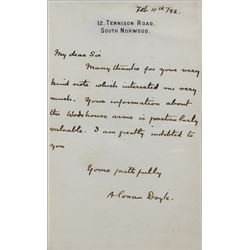 Feb 11th /92.
12, TENNISON ROAD,
SOUTH NORWOOD.
My dear Sir
Many thanks for your very
kind note which interested me very
much. Your information about
the Workhouse arms is particularly
valuable. I am greatly indebted to
you
Yours faithfully
A Conan Doyle.